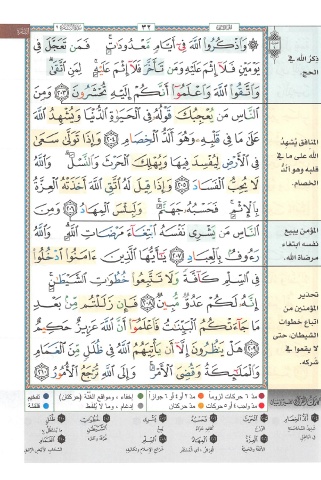 ٣٢
۞ وَاذْكُرُوا اللَّهَ فِي أَيَّامٍ مَّعْدُودَاتٍ فَمَن تَعَجَّلَ فِي
يَوْمَيْنِ فَلَا إِثْمَ عَلَيْهِ وَمَن تَأَخَّرَ فَلَا إِثْمَ عَلَيْهِ لِمَنِ اتَّقَىٰ
وَاتَّقُوا اللَّهَ وَاعْلَمُوا أَنَّكُمْ إِلَيْهِ تُحْشَرُونَ ٢٠٣ وَمِنَ
النَّاسِ مَن يُعْجِبُكَ قَوْلُهُ فِي الْحَيَاةِ الدُّنْيَا وَيُشْهِدُ اللَّهَ
عَلَىٰ مَا فِي قَلْبِهِ وَهُوَ أَلَدُّ الْخِصَامِ ٢٠٤ وَإِذَا تَوَلَّىٰ سَعَىٰ
فِي الْأَرْضِ لِيُفْسِدَ فِيهَا وَيُهْلِكَ الْحَرْثَ وَالنَّسْلَ وَاللَّهُ
لَا يُحِبُّ الْفَسَادَ ٢٠٥ وَإِذَا قِيلَ لَهُ اتَّقِ اللَّهَ أَخَذَتْهُ الْعِزَّةُ
بِالْإِثْمِ فَحَسْبُهُ جَهَنَّمُ وَلَبِئْسَ الْمِهَادُ ٢٠٦ وَمِنَ
النَّاسِ مَن يَشْرِي نَفْسَهُ ابْتِغَاءَ مَرْضَاتِ اللَّهِ وَاللَّهُ
رَءُوفٌ بِالْعِبَادِ ٢٠٧ يَا أَيُّهَا الَّذِينَ آمَنُوا ادْخُلُوا
فِي السِّلْمِ كَافَّةً وَلَا تَتَّبِعُوا خُطُوَاتِ الشَّيْطَانِ
إِنَّهُ لَكُمْ عَدُوٌّ مُّبِينٌ ٢٠٨ فَإِن زَلَلْتُم مِّن بَعْدِ
مَا جَاءَتْكُمُ الْبَيِّنَاتُ فَاعْلَمُوا أَنَّ اللَّهَ عَزِيزٌ حَكِيمٌ
٢٠٩ هَلْ يَنظُرُونَ إِلَّا أَن يَأْتِيَهُمُ اللَّهُ فِي ظُلَلٍ مِّنَ الْغَمَامِ
وَالْمَلَائِكَةُ وَقُضِيَ الْأَمْرُ وَإِلَى اللَّهِ تُرْجَعُ الْأُمُورُ ٢١٠
ذكرُ الله في
الحج.
المنافق يُشهدُ
الله على ما في
قلبه وهو ألدُّ
الخصام.
المؤمن يبيع
نفسه ابتغاء
مرضاة الله.
تحذير
المؤمنين من
اتباع خطوات
الشيطان، حتى
لا يقعوا في
شركه.
مدّ ٦ حركات لزوماً
مدّ ٢ أو ٤ أو ٦ جوازاً
إخفاء، ومواقع الغنّة (حركتان)
تفخيم
مدّ واجب ٤ أو ٥ حركات
مدّ حركتان
إدغام، وما لا يُلفظ
قلقلة